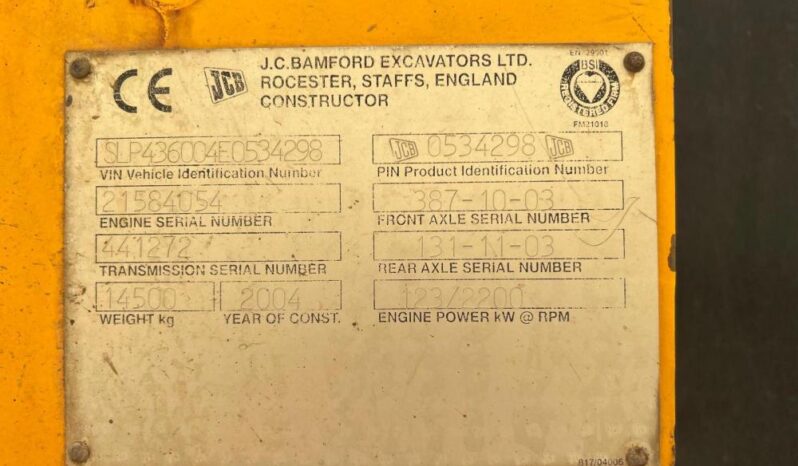 CE JCB J.C.BAMFORD EXCAVATORS LTD.
ROCESTER, STAFFS, ENGLAND
CONSTRUCTOR
EN 29001
BSI
REGISTERED FIRM
FM21018
SLP436004E0534298
VIN Vehicle Identification Number
JCB 0534298 JCB
PIN Product Identification Number
21584054
ENGINE SERIAL NUMBER
387-10-03
FRONT AXLE SERIAL NUMBER
441272
TRANSMISSION SERIAL NUMBER
131-11-03
REAR AXLE SERIAL NUMBER
14500 2004
WEIGHT kg YEAR OF CONST.
123/2200
ENGINE POWER kW @ RPM
817/04006